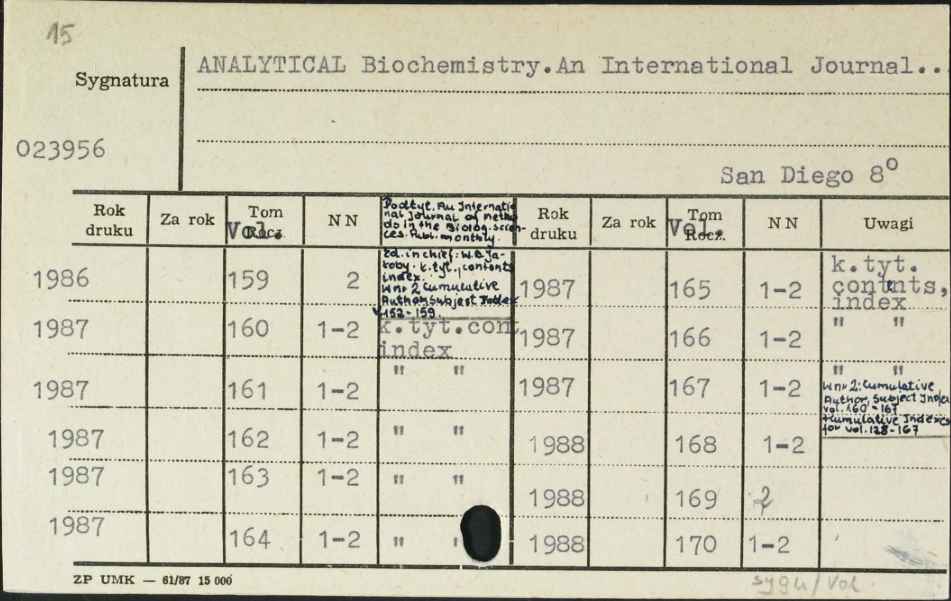 15
ANALYTICAL Biochemistry.An International Journal..
Sygnatura
023956
San Diego 8°
Rok druku Za rok Tom Vol. Rocz. NN Rok druku Za rok Tom Vol. Rocz. NN Uwagi
Podtyt. An Internatio
nal Journal of metho
ds in the Biolog. scien-
ces. Publ. monthly.
Ed. in chief: W.B. Ja-
koby. k. tyt., contents
index.
W nr 2 Cumulative
Author, Subject Index
152-159.
1986 159 2
1987 160 1-2 k.tyt.cont
index
1987 161 1-2 " "
1987 162 1-2 " "
1987 163 1-2 " "
1987 164 1-2 " "
1987 165 1-2 k.tyt.
contents,
index
1987 166 1-2 " "
1987 167 1-2 " "
W nr 2: Cumulative
Author, Subject Index
vol. 160-167
+Cumulative Indexes
for vol. 128-167
1988 168 1-2
1988 169 2
1988 170 1-2
ZP UMK — 61/87 15 000
sygn/vol.